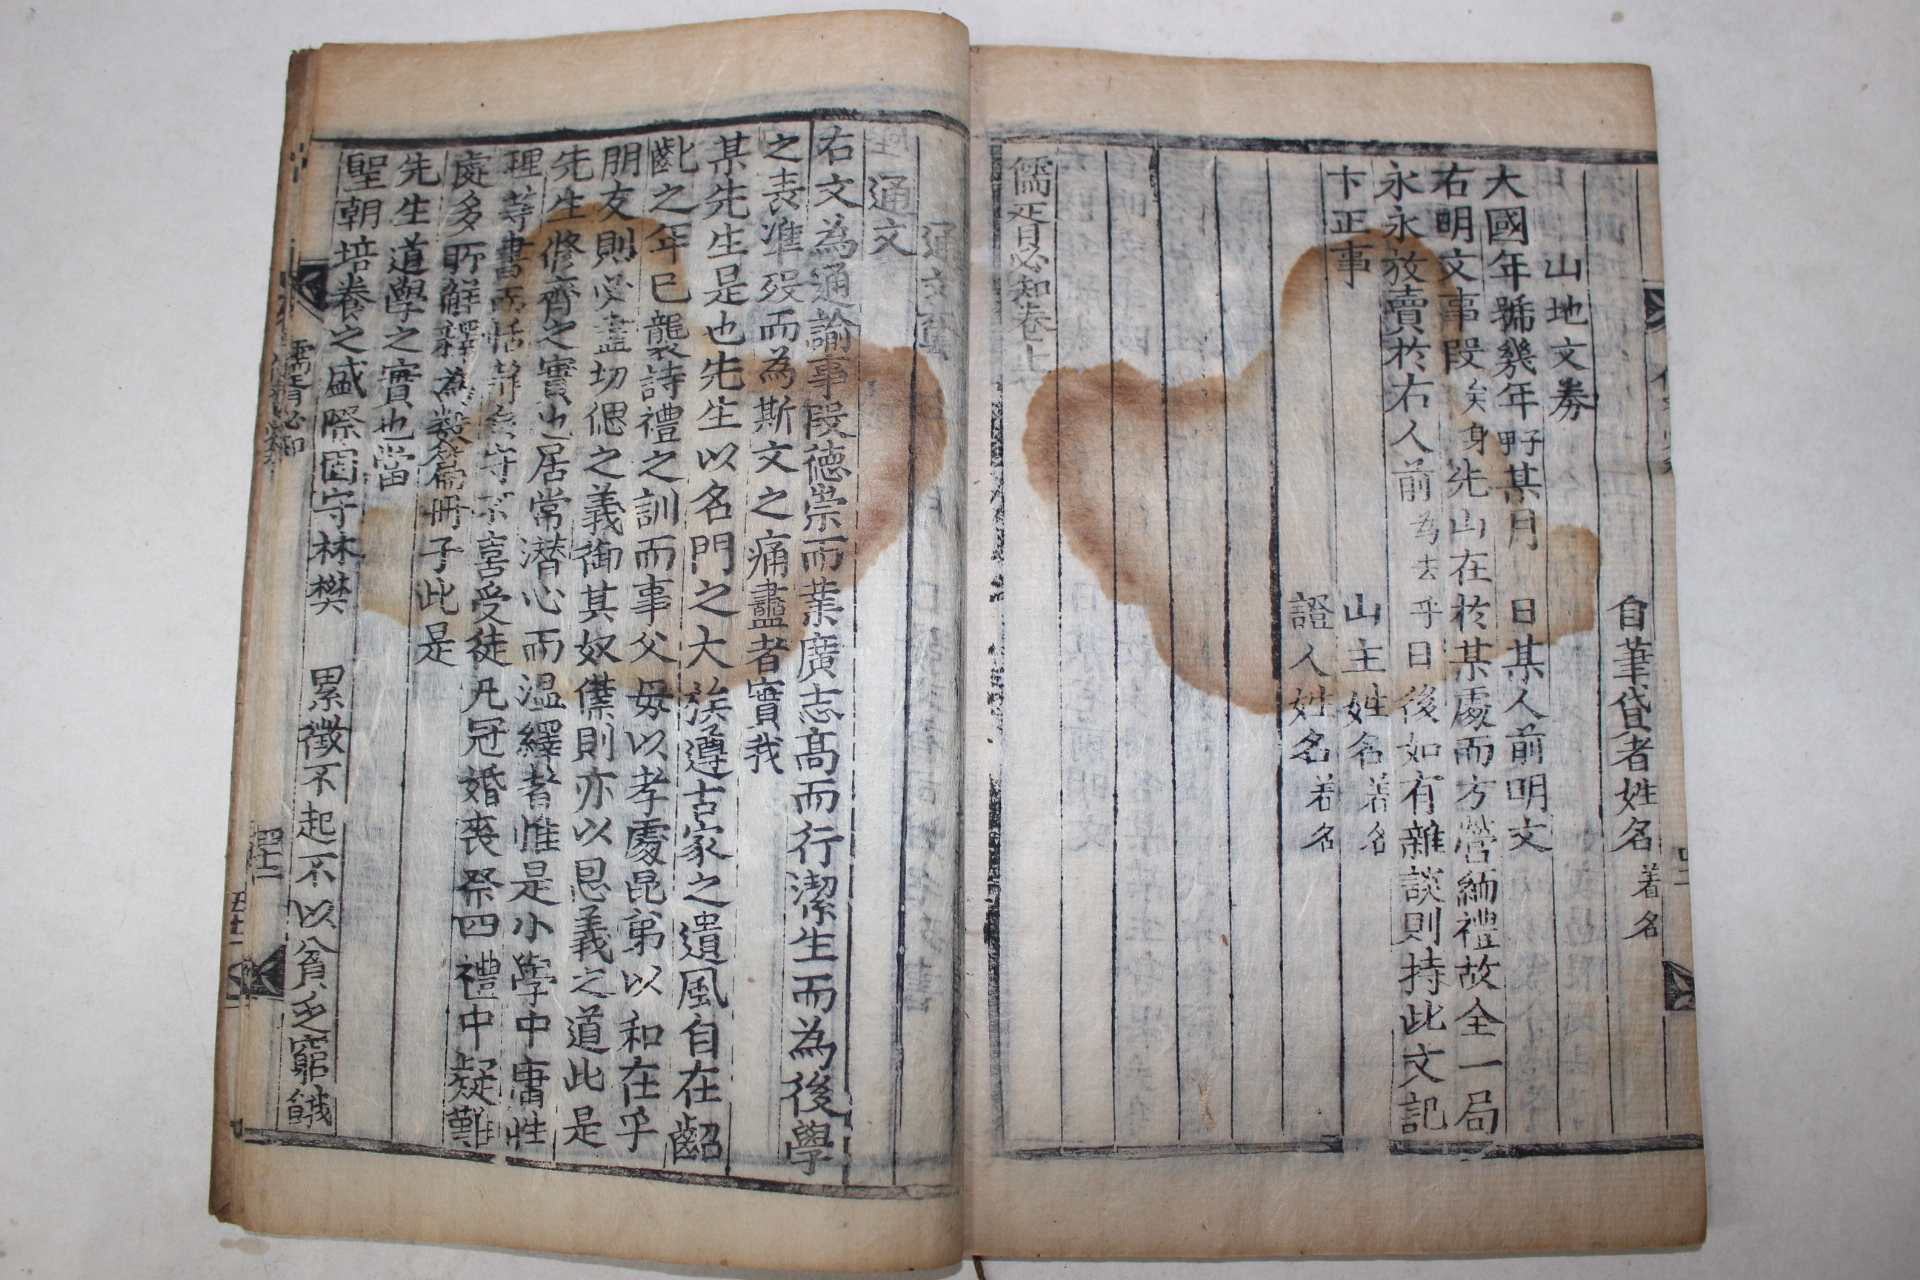 自筆貸者姓名 着名
山地文券
大國年號幾年 某月 日某人前明文
右明文事段矣身先山在於某處而方營緬禮故全一局
永永放賣於右人前為去乎日後如有雜談則持此文記
卞正事
山主姓名 着名
證人姓名 着名
儒胥必知卷上
通文
右文為通諭事段德崇而業廣志高而行潔生而為後學
之表準歿而為斯文之痛盡者實我
某先生是也先生以名門之大族遵古家之遺風自在齠
齔之年已襲詩禮之訓而事父母以孝處昆弟以和在乎
朋友則必盡切偲之義御其奴僕則亦以恩義之道此是
先生修齊之實也居常潛心而溫繹者惟是小學中庸性
理等書而恬靜自守不喜受徒凡冠婚喪祭四禮中疑難
處多所解釋為數篇冊子此是
先生道學之實也當
聖朝培養之盛際固守林樊 累徵不起不以貧乏窮餓
儒胥必知